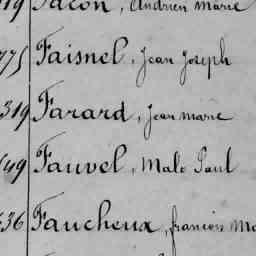 Facon, Andrien Marie
775 Faisnel, Jean Joseph
319 Farard, Jean Marie
Fauvel, Malo Paul
36 Faucheux, francois Ma